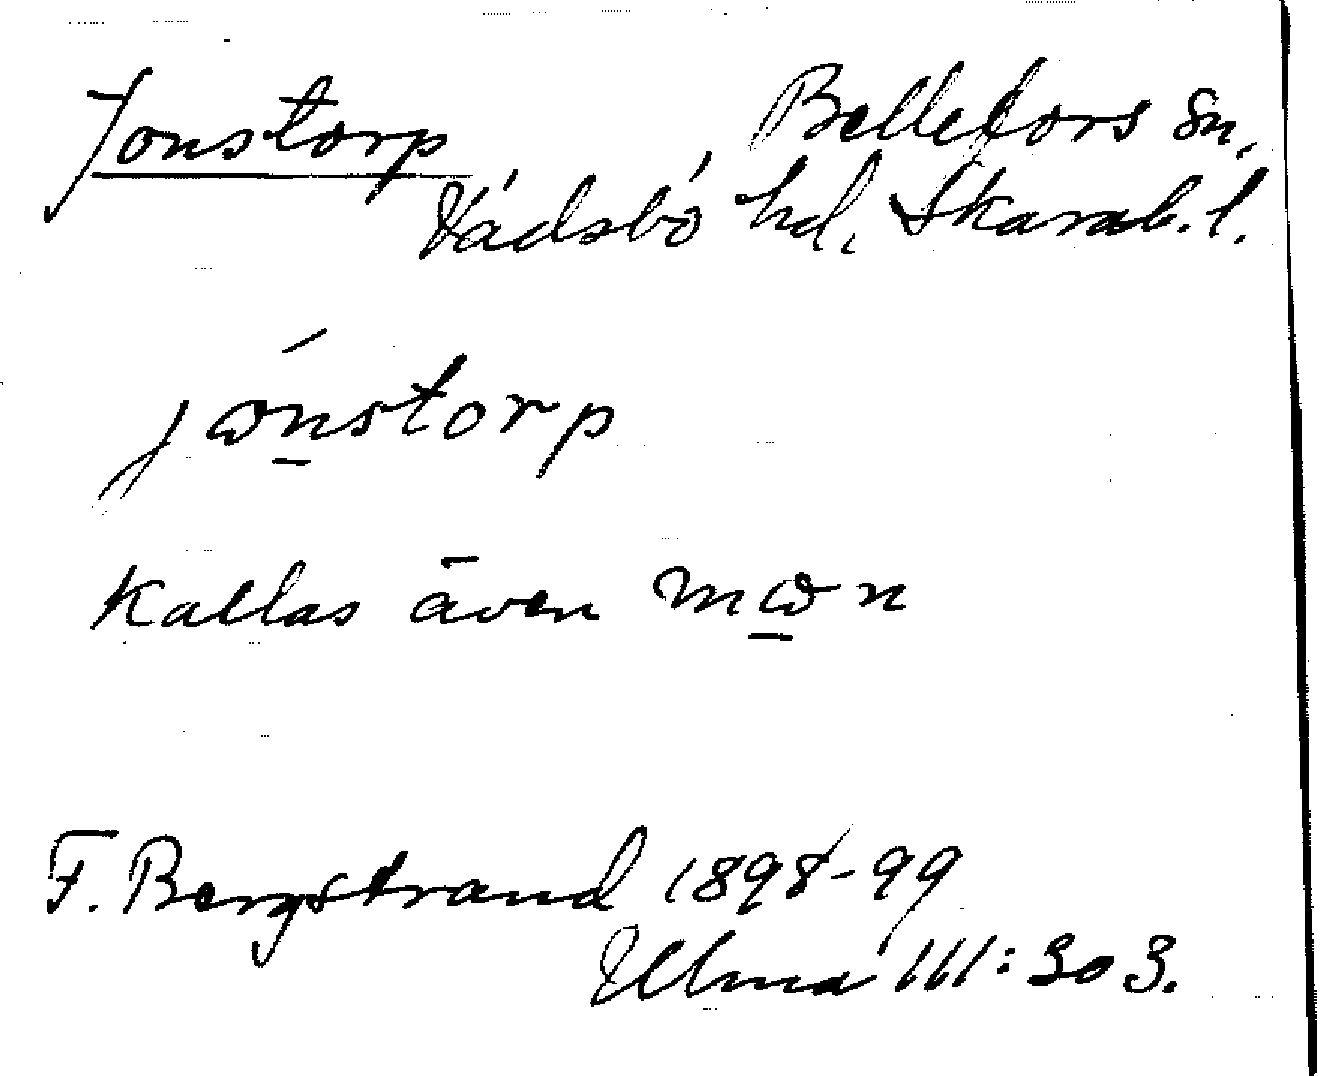 Jonstorp Bellefors sn,
Vadsbo hd, Skarab. l.
jɷnstorp
Kallas även mɷn
F. Bergstrand 1898-99
Ulma 111:303.